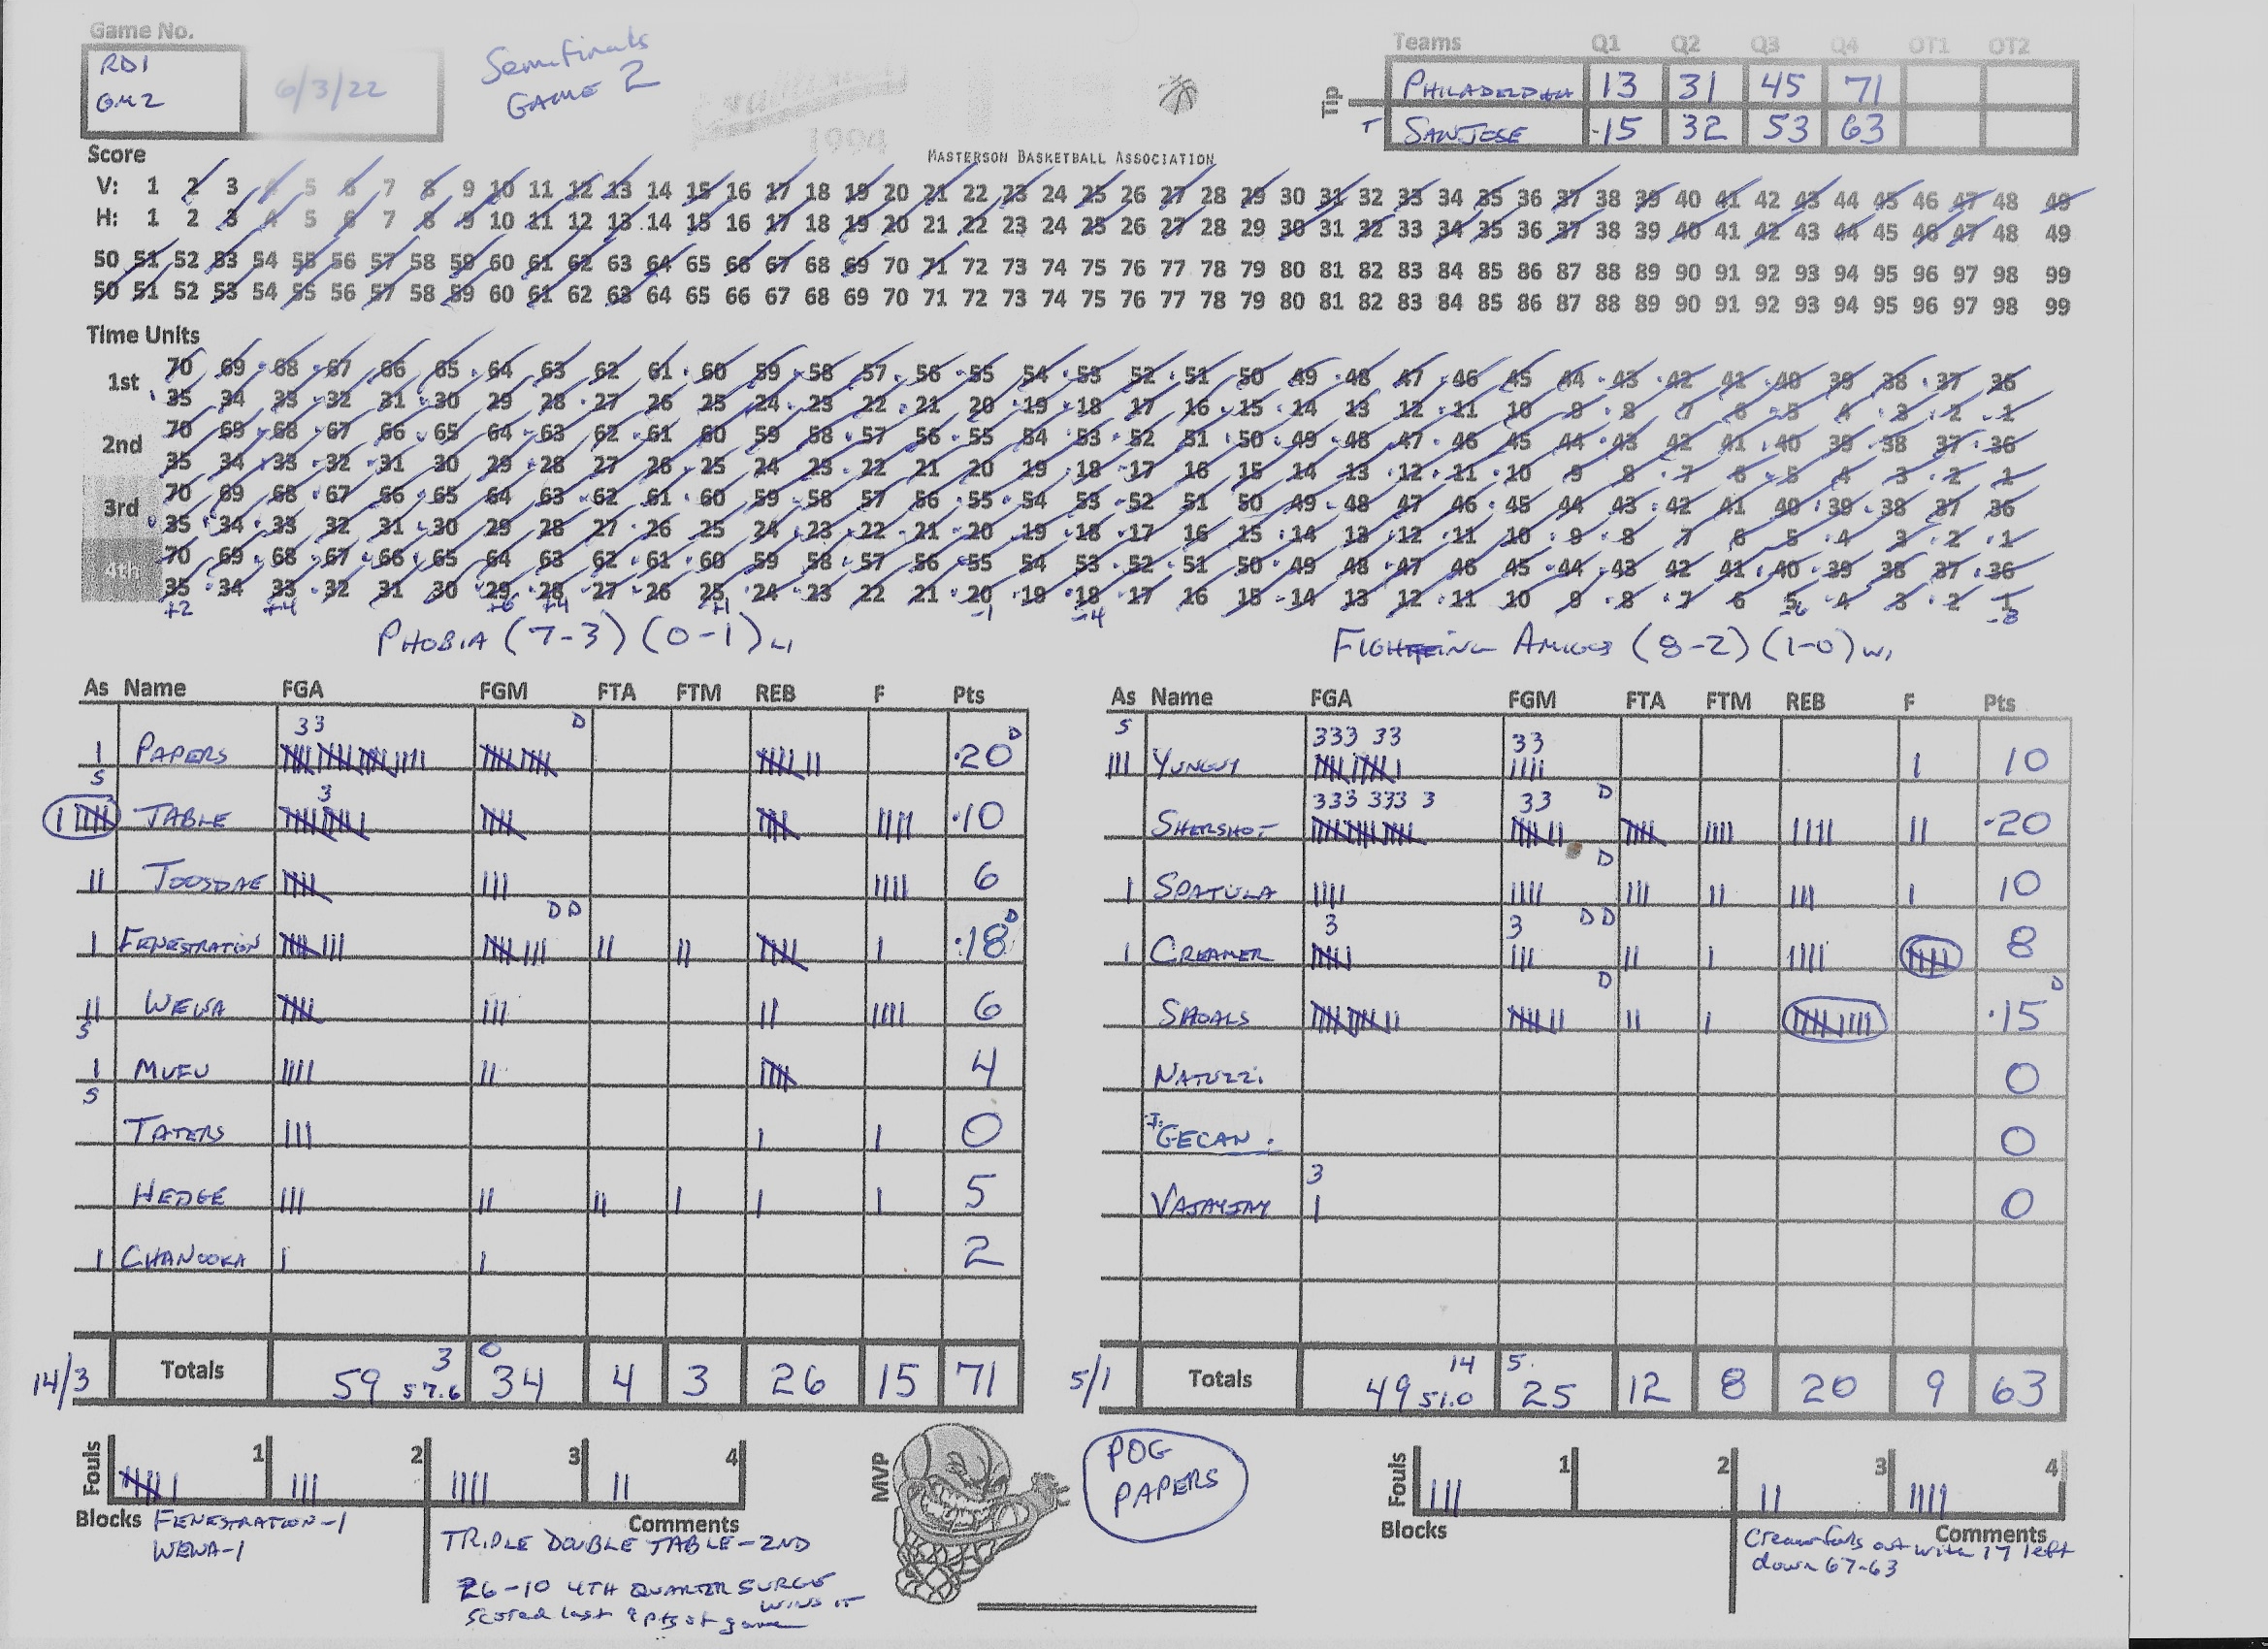 Game No.
RD1
GM2
6/3/22
Semifinals
GAME 2
1994
MASTERSON BASKETBALL ASSOCIATION
Teams Q1 Q2 Q3 Q4 OT1 OT2
Tip
PHILADELPHIA 13 31 45 71
T SAN JOSE 15 32 53 63
Score
V: 1 2 3 4 5 6 7 8 9 10 11 12 13 14 15 16 17 18 19 20 21 22 23 24 25 26 27 28 29 30 31 32 33 34 35 36 37 38 39 40 41 42 43 44 45 46 47 48 49
H: 1 2 3 4 5 6 7 8 9 10 11 12 13 14 15 16 17 18 19 20 21 22 23 24 25 26 27 28 29 30 31 32 33 34 35 36 37 38 39 40 41 42 43 44 45 46 47 48 49
50 51 52 53 54 55 56 57 58 59 60 61 62 63 64 65 66 67 68 69 70 71 72 73 74 75 76 77 78 79 80 81 82 83 84 85 86 87 88 89 90 91 92 93 94 95 96 97 98 99
50 51 52 53 54 55 56 57 58 59 60 61 62 63 64 65 66 67 68 69 70 71 72 73 74 75 76 77 78 79 80 81 82 83 84 85 86 87 88 89 90 91 92 93 94 95 96 97 98 99
Time Units
1st 70 69 68 67 66 65 64 63 62 61 60 59 58 57 56 55 54 53 52 51 50 49 48 47 46 45 44 43 42 41 40 39 38 37 36
35 34 33 32 31 30 29 28 27 26 25 24 23 22 21 20 19 18 17 16 15 14 13 12 11 10 9 8 7 6 5 4 3 2 1
2nd 70 69 68 67 66 65 64 63 62 61 60 59 58 57 56 55 54 53 52 51 50 49 48 47 46 45 44 43 42 41 40 39 38 37 36
35 34 33 32 31 30 29 28 27 26 25 24 23 22 21 20 19 18 17 16 15 14 13 12 11 10 9 8 7 6 5 4 3 2 1
3rd 70 69 68 67 66 65 64 63 62 61 60 59 58 57 56 55 54 53 52 51 50 49 48 47 46 45 44 43 42 41 40 39 38 37 36
35 34 33 32 31 30 29 28 27 26 25 24 23 22 21 20 19 18 17 16 15 14 13 12 11 10 9 8 7 6 5 4 3 2 1
4th 70 69 68 67 66 65 64 63 62 61 60 59 58 57 56 55 54 53 52 51 50 49 48 47 46 45 44 43 42 41 40 39 38 37 36
35 34 33 32 31 30 29 28 27 26 25 24 23 22 21 20 19 18 17 16 15 14 13 12 11 10 9 8 7 6 5 4 3 2 1
+2 +4 +6 +4 +1 -1 -4 -6 -8
PHOBIA (7-3) (0-1) L1
As Name FGA FGM FTA FTM REB F Pts
33 D D
PAPERS 20
S 3
TABLE 10
TOOSDAE 6
DD D
FENESTRATION 18
WEWA 6
S
MUFU 4
S
TATERS 0
HEDGE 5
CHANOOKA 2
3 0
14/3 Totals 59 57.6 34 4 3 26 15 71
Fouls 1 2 3 4
Blocks FENESTRATION-1
WEWA-1
Comments
TRIPLE DOUBLE TABLE-2ND
26-10 4TH QUARTER SURGE
WINS IT
scored last 8 pts of game
MVP
POG
PAPERS
FIGHTING AMIGOS (8-2) (1-0) W1
As Name FGA FGM FTA FTM REB F Pts
S 333 33 33
YUNGUY 10
333 333 3 33 D
SHERSHOT 20
D
SPATULA 10
3 3 DD
CREAMER 8
D D
SHOALS 15
NATUZZI 0
GECAN 0
3
VAJAYJAY 0
14 5
5/1 Totals 49 51.0 25 12 8 20 9 63
Fouls 1 2 3 4
Blocks
Comments
Creamer fouls out with 17 left
down 67-63